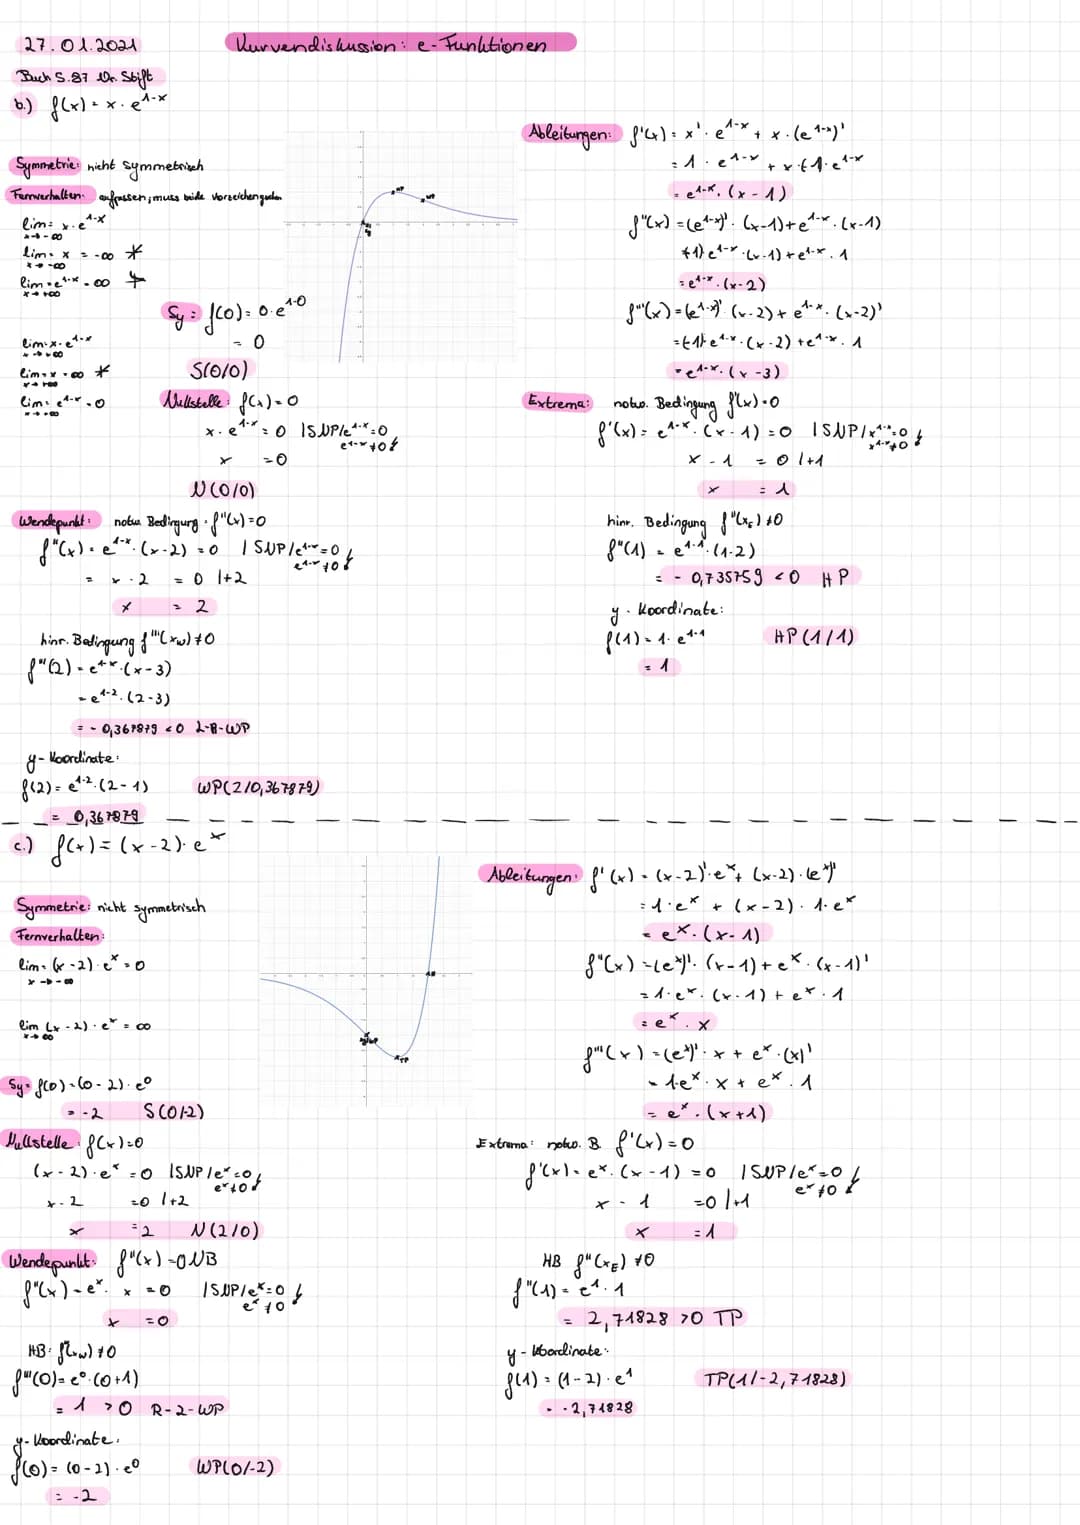 27.01.2021
Kurvendiskussion: e-Funktionen
Buch S.87 Nr. Stift
b.) f(x) = x · e^1-x
Symmetrie: nicht symmetrisch
Fernverhalten: aufpassen, muss beide Vorzeichen
lim = x · e^1-x
x→-∞
lim = x = -∞ *
x→-∞
lim = e^1-x = ∞
x→+∞
lim = x · e^1-x
x→+∞
lim = x = ∞ *
x→+∞
lim = e^1-x = 0
x→+∞
HP
WP
Sy: f(0) = 0 · e^1-0
= 0
S(0/0)
Nullstelle: f(x) = 0
x · e^1-x = 0 |SNP/e^1-x=0
e^1-x ≠0 ↯
x = 0
N(0/0)
Ableitungen: f'(x) = x' · e^1-x + x · (e^1-x)'
= 1 · e^1-x + x · (-1) · e^1-x
= e^1-x · (x - 1)
f''(x) = (e^1-x)' · (x-1) + e^1-x · (x-1)
(-1) e^1-x · (x-1) + e^1-x · 1
= e^1-x · (x-2)
f'''(x) = (e^1-x)' · (x-2) + e^1-x · (x-2)'
= (-1) e^1-x · (x-2) + e^1-x · 1
= e^1-x · (x-3)
Extrema: notw. Bedingung f'(x) = 0
f'(x) = e^1-x · (x-1) = 0 |SNP/x^1-x=0
x^1-x ≠0 ↯
x - 1 = 0 |+1
x = 1
hinr. Bedingung f''(xE) ≠0
f''(1) = e^1-1 · (1-2)
= - 0,735759 <0 HP
y - Koordinate:
f(1) = 1 · e^1-1
= 1
HP(1/1)
Wendepunkt: notw. Bedingung: f''(x) = 0
f''(x) = e^1-x · (x-2) = 0 |SNP/e^1-x=0
e^1-x ≠0 ↯
= x - 2 = 0 |+2
x = 2
hinr. Bedingung f'''(xw) ≠0
f'''(2) = e^1-x · (x-3)
= e^1-2 · (2-3)
= - 0,367879 <0 L-R-WP
y-Koordinate:
f(2) = e^1-2 · (2-1)
= 0,367879
WP(2/0,367879)
c.) f(x) = (x-2) · e^x
Symmetrie: nicht symmetrisch
Fernverhalten:
lim = (x-2) · e^x = 0
x→-∞
lim (x-2) · e^x = ∞
x→∞
TP
Sy = f(0) = (0-2) · e^0
= -2 S(0/-2)
Nullstelle: f(x) = 0
(x-2) · e^x = 0 |SNP/e^x=0
e^x≠0 ↯
x - 2 = 0 |+2
x = 2 N(2/0)
Wendepunkt: f''(x) = 0 NB
f''(x) = e^x · x = 0 |SNP/e^x=0
e^x ≠0 ↯
x = 0
HB: f'''(xw) ≠0
f'''(0) = e^0 · (0+1)
= 1 >0 R-L-WP
y-Koordinate:
f(0) = (0-2) · e^0
= -2
WP(0/-2)
Ableitungen: f'(x) = (x-2)' · e^x + (x-2) · (e^x)'
= 1 · e^x + (x-2) · 1 · e^x
= e^x · (x-1)
f''(x) = (e^x)' · (x-1) + e^x · (x-1)'
= 1 · e^x · (x-1) + e^x · 1
= e^x · x
f'''(x) = (e^x)' · x + e^x · (x)'
= 1e^x · x + e^x · 1
= e^x · (x+1)
Extrema: notw. B. f'(x) = 0
f'(x) = e^x · (x-1) = 0 |SNP/e^x=0
e^x ≠0 ↯
x - 1 = 0 |+1
x = 1
HB f''(xE) ≠0
f''(1) = e^1 · 1
= 2,71828 >0 TP
y - Koordinate:
f(1) = (1-2) · e^1
= -2,71828
TP(1/-2,71828)